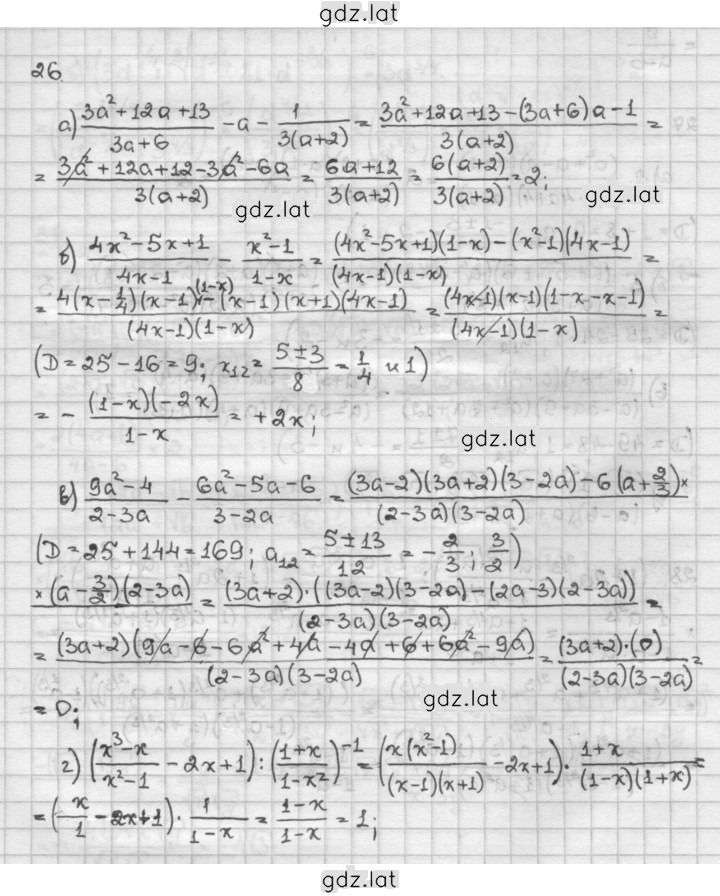 gdz.lat
26.
а) (3a²+12a+13)/(3a+6) - a - 1/(3(a+2)) = (3a²+12a+13-(3a+6)a-1)/(3(a+2)) =
= (3a²+12a+12-3a²-6a)/(3(a+2)) = (6a+12)/(3(a+2)) = (6(a+2))/(3(a+2)) = 2;
gdz.lat
gdz.lat
б) (4x²-5x+1)/(4x-1) - (x²-1)/(1-x) = ((4x²-5x+1)(1-x)-(x²-1)(4x-1))/((4x-1)(1-x)) =
= (4(x-1/4)(x-1)(1-x)-(x-1)(x+1)(4x-1))/((4x-1)(1-x)) = ((4x-1)(x-1)(1-x-x-1))/((4x-1)(1-x)) =
(D=25-16=9; x₁₂= (5±3)/8 = 1/4 и 1)
= - ((1-x)(-2x))/(1-x) = +2x;
gdz.lat
в) (9a²-4)/(2-3a) - (6a²-5a-6)/(3-2a) = ((3a-2)(3a+2)(3-2a)-6(a+2/3)×)/((2-3a)(3-2a))
(D=25+144=169; a₁₂= (5±13)/12 = -2/3; 3/2)
×(a-3/2)(2-3a) = ((3a+2)·((3a-2)(3-2a)-(2a-3)(2-3a)))/((2-3a)(3-2a)) =
= ((3a+2)(9a-6-6a²+4a-4a+6+6a²-9a))/((2-3a)(3-2a)) = ((3a+2)·(0))/((2-3a)(3-2a)) =
= 0;
gdz.lat
г) ((x³-x)/(x²-1) - 2x+1) : ((1+x)/(1-x²))⁻¹ = ((x(x²-1))/((x-1)(x+1)) - 2x+1) · (1+x)/((1-x)(1+x)) =
= (x/1 - 2x+1) · 1/(1-x) = (1-x)/(1-x) = 1;
gdz.lat